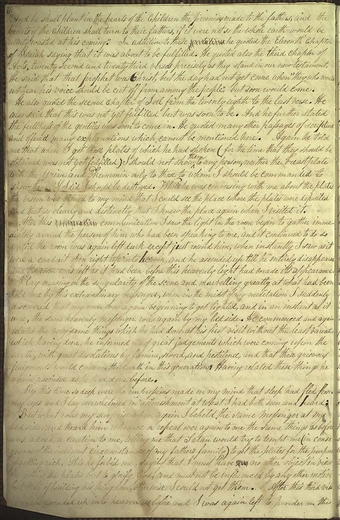 And he shall plant in the hearts of the children the promises made to the fathers, and the
hearts of the children shall turn to their fathers, if it were not so the whole earth would be
utterly wasted at his coming. In addition to these he quoted the Eleventh Chapter
of Isaiah saying that it was about to be fulfilled. He quoted also the third chapter of
Acts, twenty second and twenty third verses precisely as they stand in our new testament.
He said that that prophet was Christ, but the day had not yet come when they who would
not hear his voice should be cut off from among the people, but soon would come.
He also quoted the second chapter of Joel from the twenty eighth to the last verse. He
also said that this was not yet fulfilled but was soon to be. And he further stated
the fulness of the gentiles was soon to come in. He quoted many other passages of scripture
and offered many explanations which cannot be mentioned here. Again he told
me that when I got those plates of which he had spoken (for the time that they should be
obtained was not yet fulfilled) I should not show them to any person, neither the breastplate
with the Urim and Thummim only to those to whom I should be commanded to
show them. If I did I should be destroyed. While he was conversing with me about the plates
the vision was opened to my mind that I could see the place where the plates were deposited
and that so clearly and distinctly that I knew the place again when I visited it.
After this communication I saw the light in the room begin to gather immediately
around the person of him who had been speaking to me, and it continued to do so
until the room was again left dark except just around him, when instantly I saw as it
were a conduit open right up into heaven, and he ascended up till he entirely disappeared
and the room was left as it had been before this heavenly light had made its appearance.
I lay musing on the singularity of the scene and marvelling greatly at what had been
told me by this extraordinary messenger, when in the midst of my meditation I suddenly
discovered that my room was again beginning to get lighted, and in an instant as it
were, the same heavenly messenger was again by my bed side. He commenced and again
related the very same things which he had done at his first visit without the least variation
which having done, he informed me of great judgements which were coming upon the
earth, with great desolations by famine, sword, and pestilence, and that these grievous
judgments would come on the earth in this generation. Having related these things he
again ascended as he had done before.
By this time so deep were the impressions made on my mind that sleep had fled from
my eyes and I lay overwhelmed in astonishment at what I had both seen and heard.
But what was my surprise when again I beheld the same messenger at my
bed side, and heard him rehearse or repeat over again to me the same things as before
and added a caution to me, telling me that Satan would try to tempt me (in consequence
of the indigent circumstances of my father's family) to get the plates for the purpose
of getting rich. This he forbid me, saying that I must have no other object in view
in getting the plates but to glorify God, and must not be influenced by any other motive
but that of building his kingdom, otherwise I could not get them. After this third visit
he again ascended up into heaven as before and I was again left to ponder on the